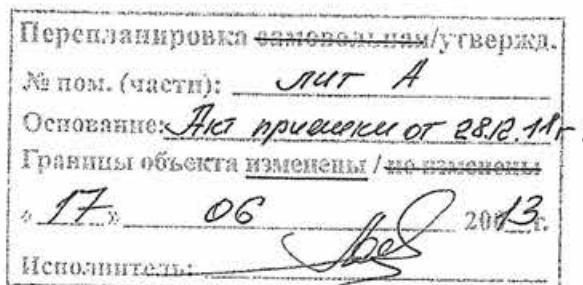 Перепланировка самовольная/утвержд.
№ пом. (части): лит А
Основание: Акт приемки от 28.12.11г.
Границы объекта изменены / не изменены
« 17 » 06 2013 г.
Исполнитель: